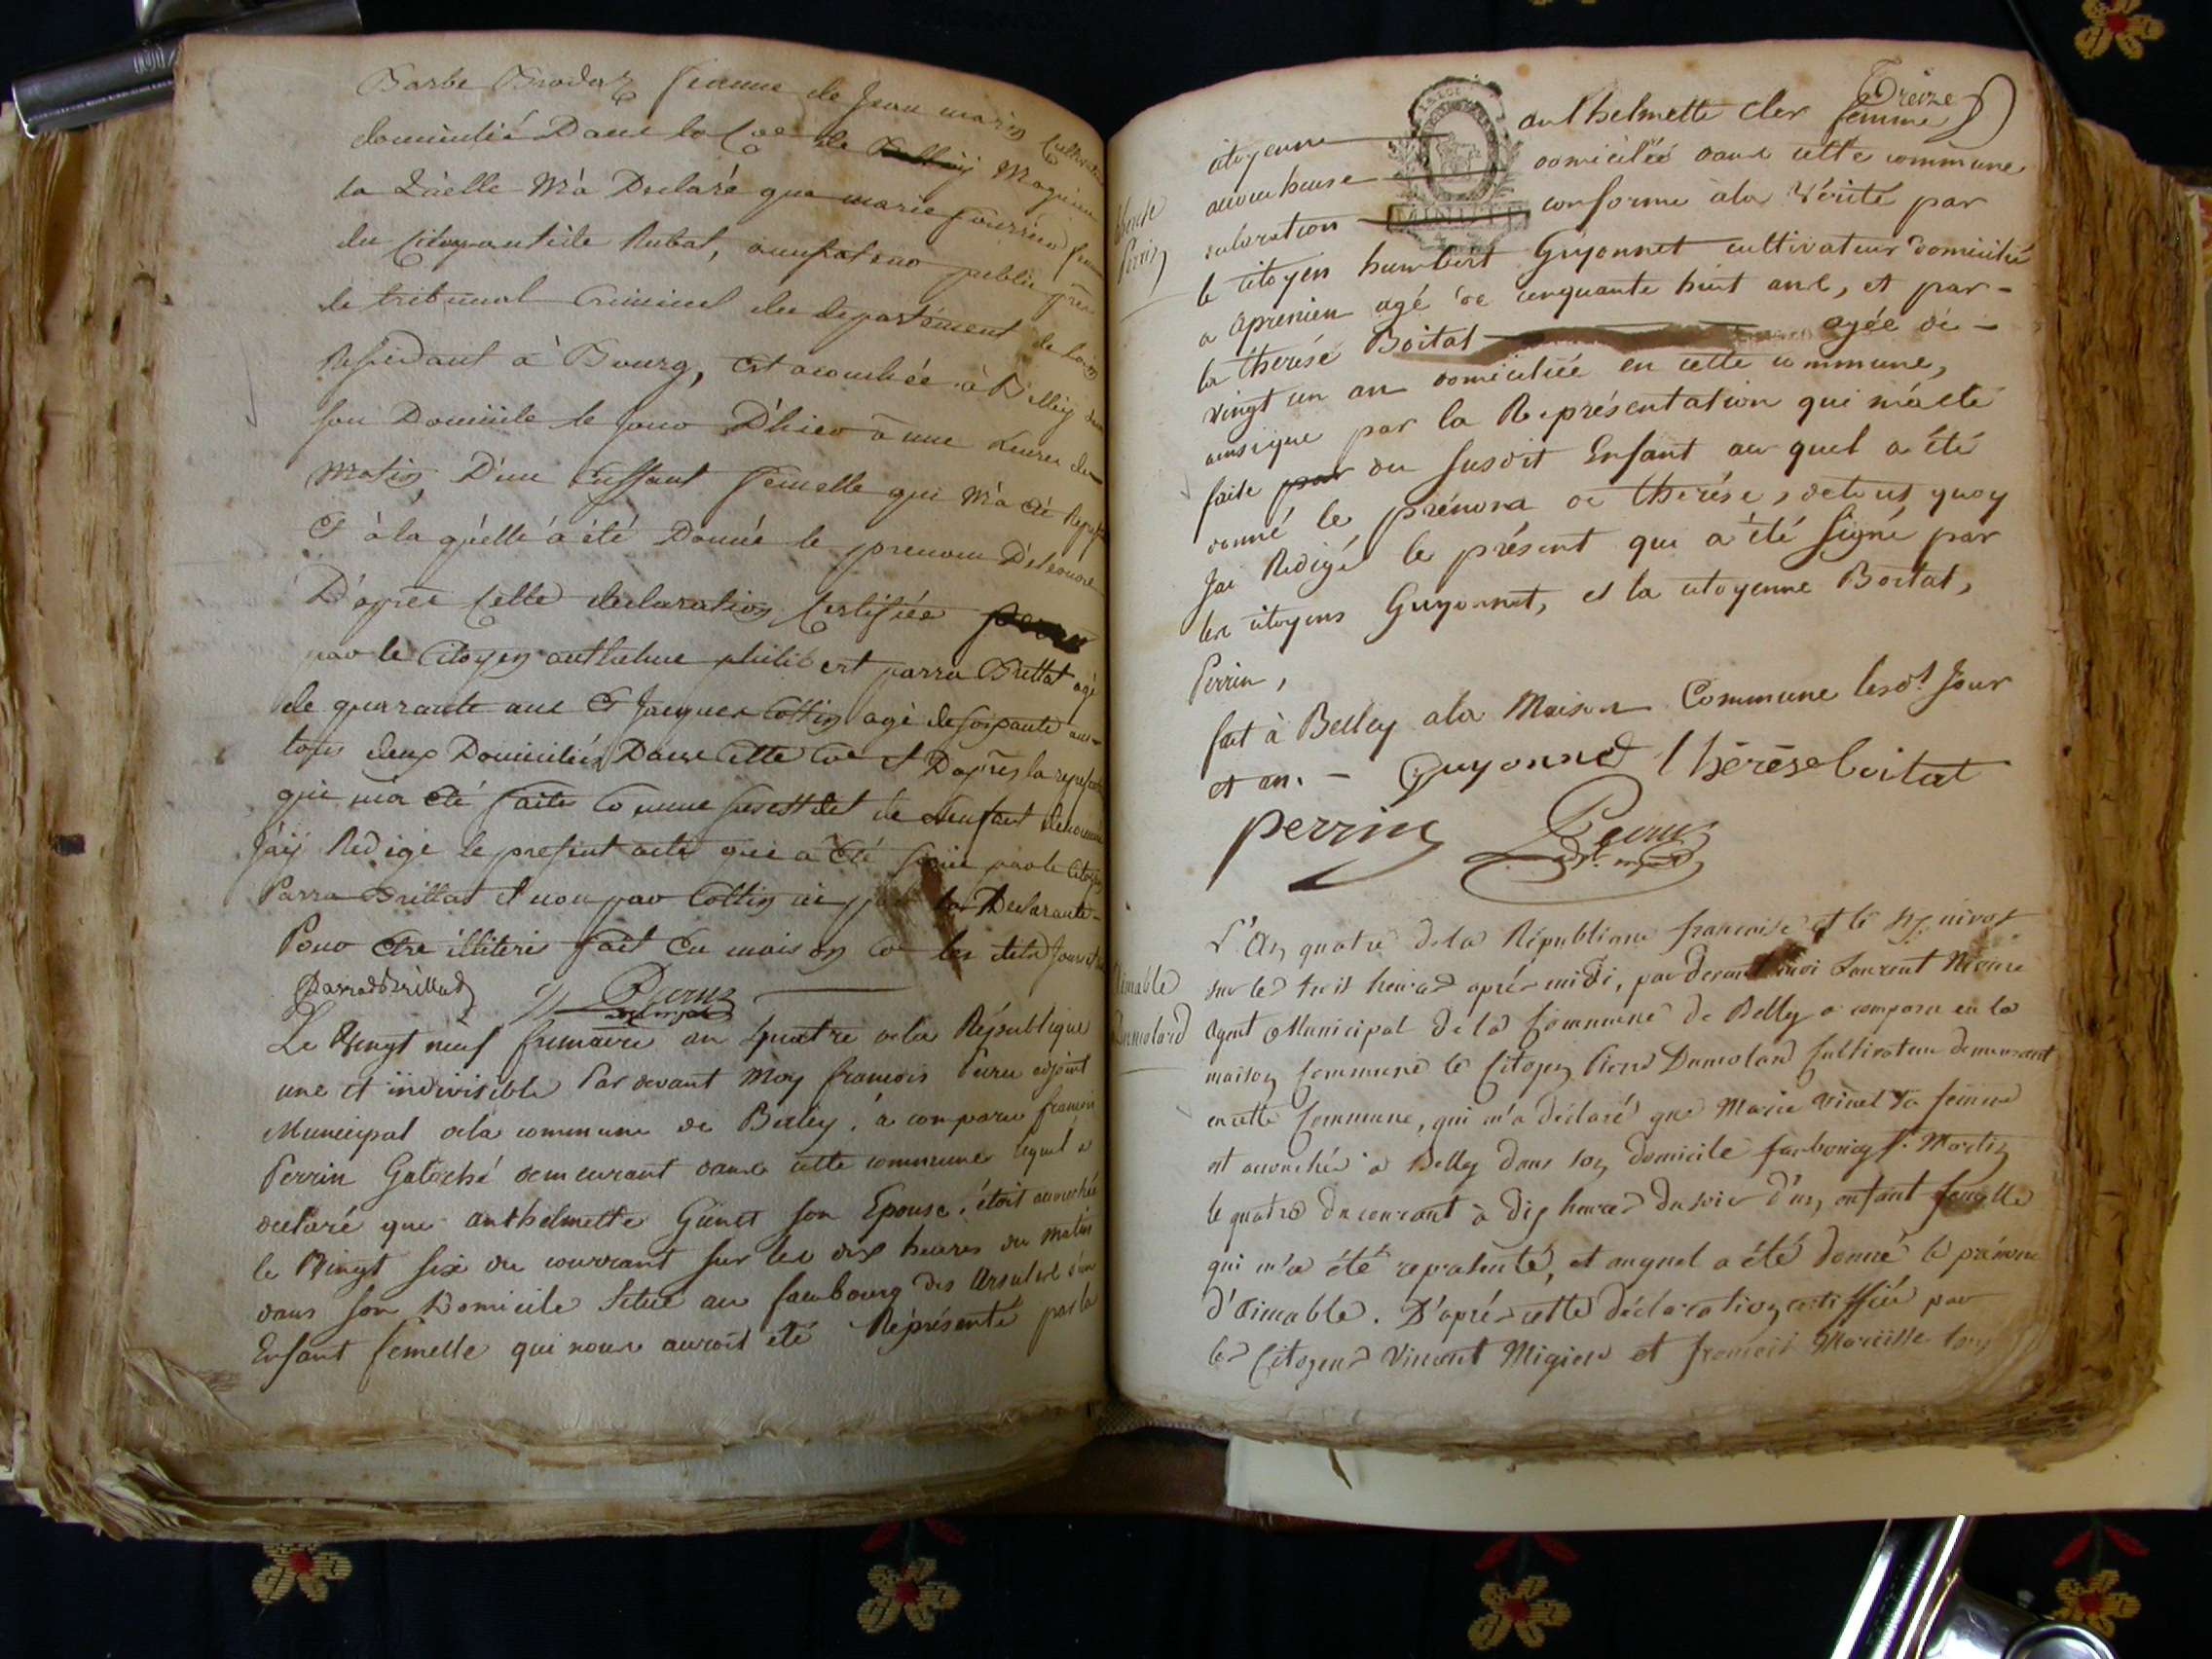 Barbe femme de Jean marin
domicilié Dans la Coe de Magnieu
la Qùelle M'à Declaré que marie femme
du Citoyen Rubat, accusateur public près
le tribunal Criminel du departement de
Residant à Bourg, est acouchée à Belley
son Domicile le jour D'hier à une heure du
Matin, D'un Enffant femelle qui M'à été
Et à la qùelle à été Donné le prenom D'eleonore
D'après Cette declaration Certifiée
par le Citoyen anthelme philibert parra Brillat agé
de quarante ans Et Jacques Cottin agé de soixante ans
tous deux Domiciliés Dans Cette Coe et D'après la
qui m'a été faite Comme de L'enfant denommé
J'aÿ Redigé le present acte qui a Eté signé par le Citoyen
Parra Brillat et non par Cottin ni la Declarante
Pour être illiteré fait En maison Co les dits Jour et
ParraBrillat Peru
Le Vingt neuf frimaire an quatre de la République
une et indivisible Par devant Moy francois Peru adjoint
Municipal de la commune de Belley, à comparu francois
Perrin Galoché demeurant dans cette commune lequel a
declaré que anthelmette Ginet son Epouse, étoit accouchée
le Vingt six du courrant sur les dix heures du matin
dans son Domicile Situé au faubourg des Ursules d'un
Enfant femelle qui nous auroit été Réprésenté par la
Treize
citoyenne anthelmette Cler femme
accoucheuse domiciliée dans cette commune
conforme à la Vérité par
le citoyen humbert Guyonnet cultivateur domicilié
a aprenien agé de cinquante huit ans, et par -
la therése Boitat agée de -
vingt un an domiciliée en cette commune,
ainsique par la Représentation qui m'a été
faite par du susdit Enfant au quel a été
donné le prénom de therése, de tout quoy
Jai Redigé le présent qui a été signé par
les citoyens Guyonnet, et la citoyenne Boitat,
Perrin,
fait à Belley a la Maison Commune lesdt. Jour
et an. - Guyonnet thérèse boitat
perrin Peru
L'An quatre de la République française et le nivos
sur les trois heures après midi, par devant moi Laurent
agent Municipal de la Commune de Belley a comparu en la
maison commune le Citoyen Pierre Dumolard Cultivateur demeurant
en cette Commune, qui m'a déclaré que Marie Vinet sa femme
est accouchée à Belley dans son domicile faubourg St. Martin
le quatre du courant à dix heures du soir d'un enfant femelle
qui m'a été représenté, et auquel a été donné le prénom
d'aimable. D'après cette déclaration certiffiée par
les Citoyens Vincent Migieu et francois Marcille
Perrin
Aimable
Dumolard